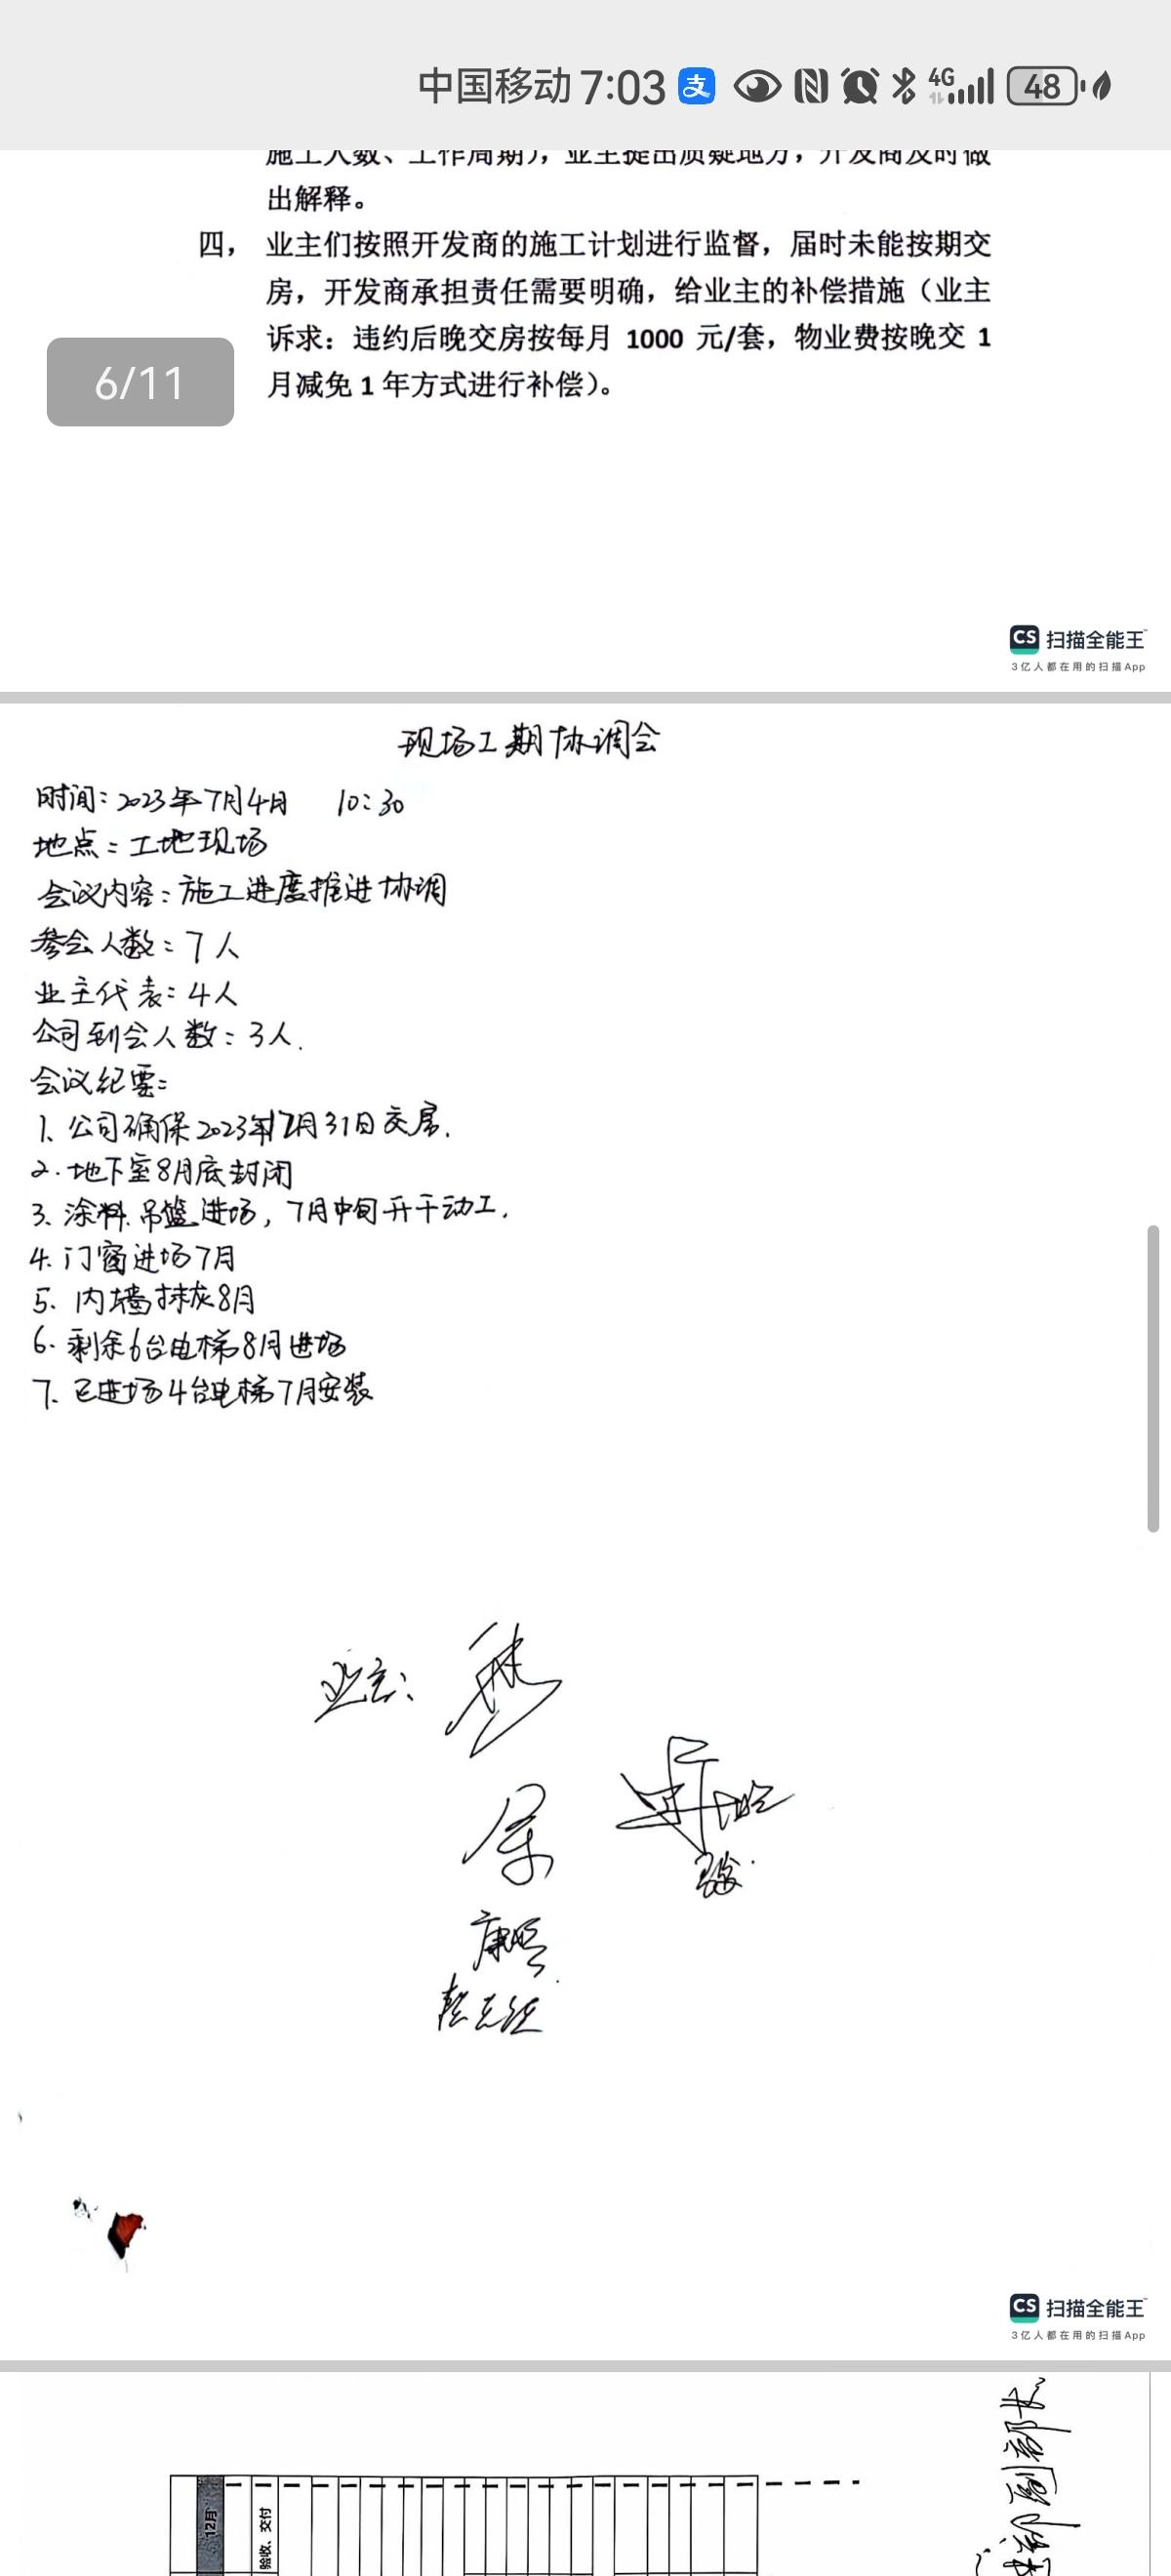 中国移动 7:03 支 4G 48
施工人数、工作周期)，业主提出质疑地方，开发商及时做
出解释。
四， 业主们按照开发商的施工计划进行监督，届时未能按期交
房，开发商承担责任需要明确，给业主的补偿措施（业主
诉求：违约后晚交房按每月 1000 元/套，物业费按晚交 1
月减免 1 年方式进行补偿）。
6/11
CS 扫描全能王
3亿人都在用的扫描App
现场工期协调会
时间：2023年7月4日 10:30
地点：工地现场
会议内容：施工进度推进协调
参会人数：7人
业主代表：4人
公司到会人数：3人.
会议纪要：
1、公司确保2023年12月31日交房.
2.地下室8月底封闭
3、涂料.吊篮进场，7月中旬开干动工.
4.门窗进场7月
5、内墙抹灰8月
6.剩余6台电梯8月进场
7、已进场4台电梯7月安装
业主：
CS 扫描全能王
3亿人都在用的扫描App
12月
验收、交付